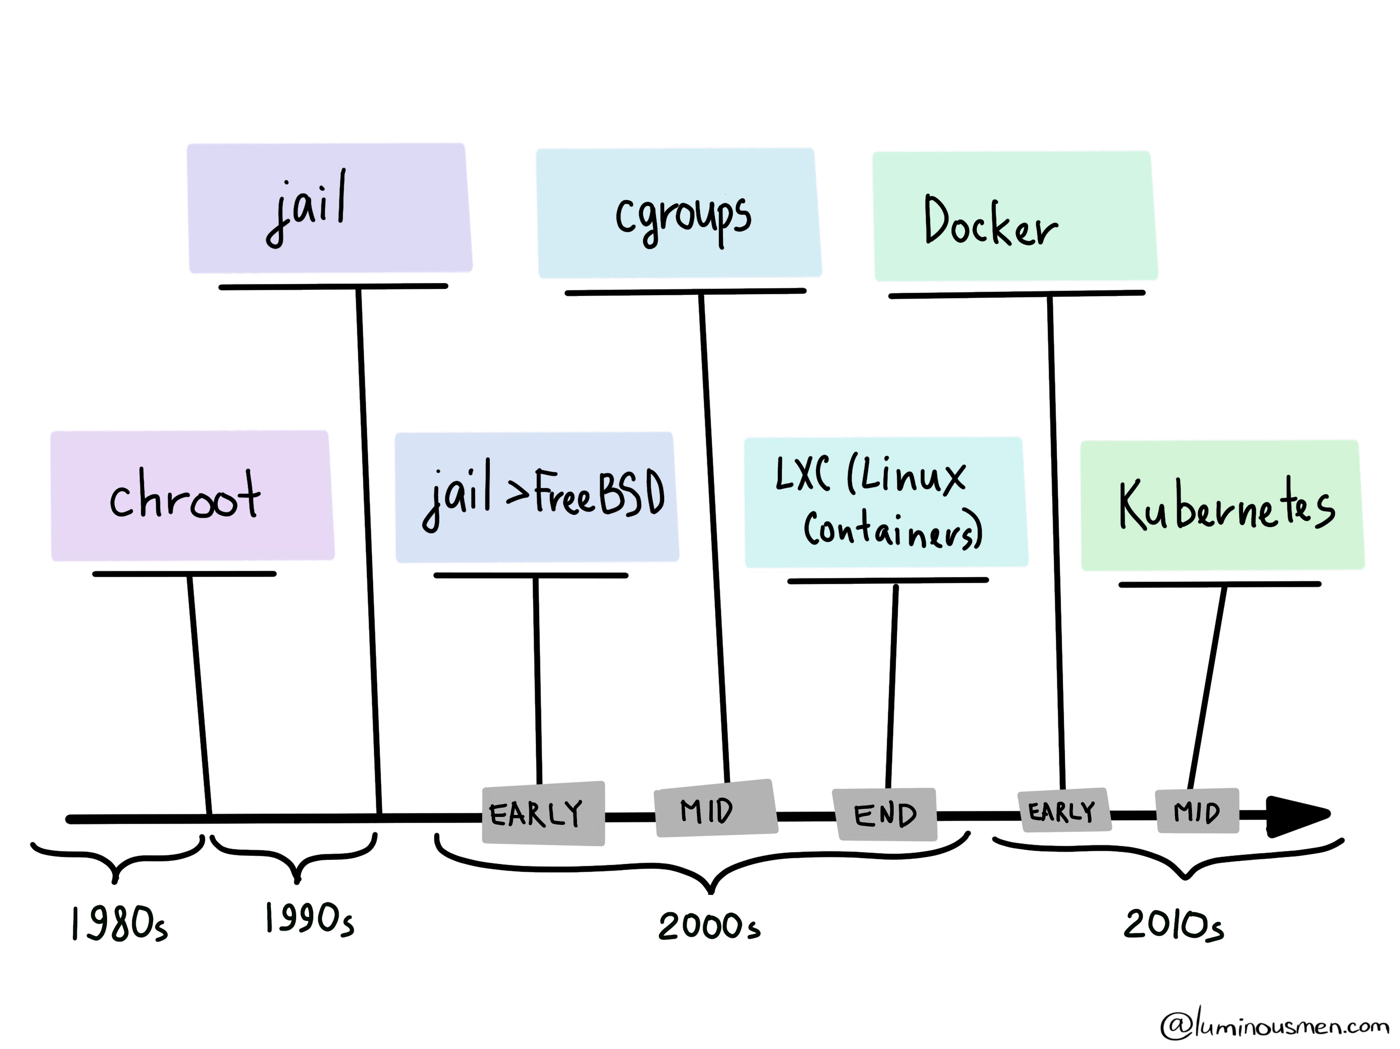 jail
cgroups
Docker
chroot
jail > FreeBSD
LXC (Linux
Containers)
Kubernetes
EARLY
MID
END
EARLY
MID
1980s
1990s
2000s
2010s
@luminousmen.com